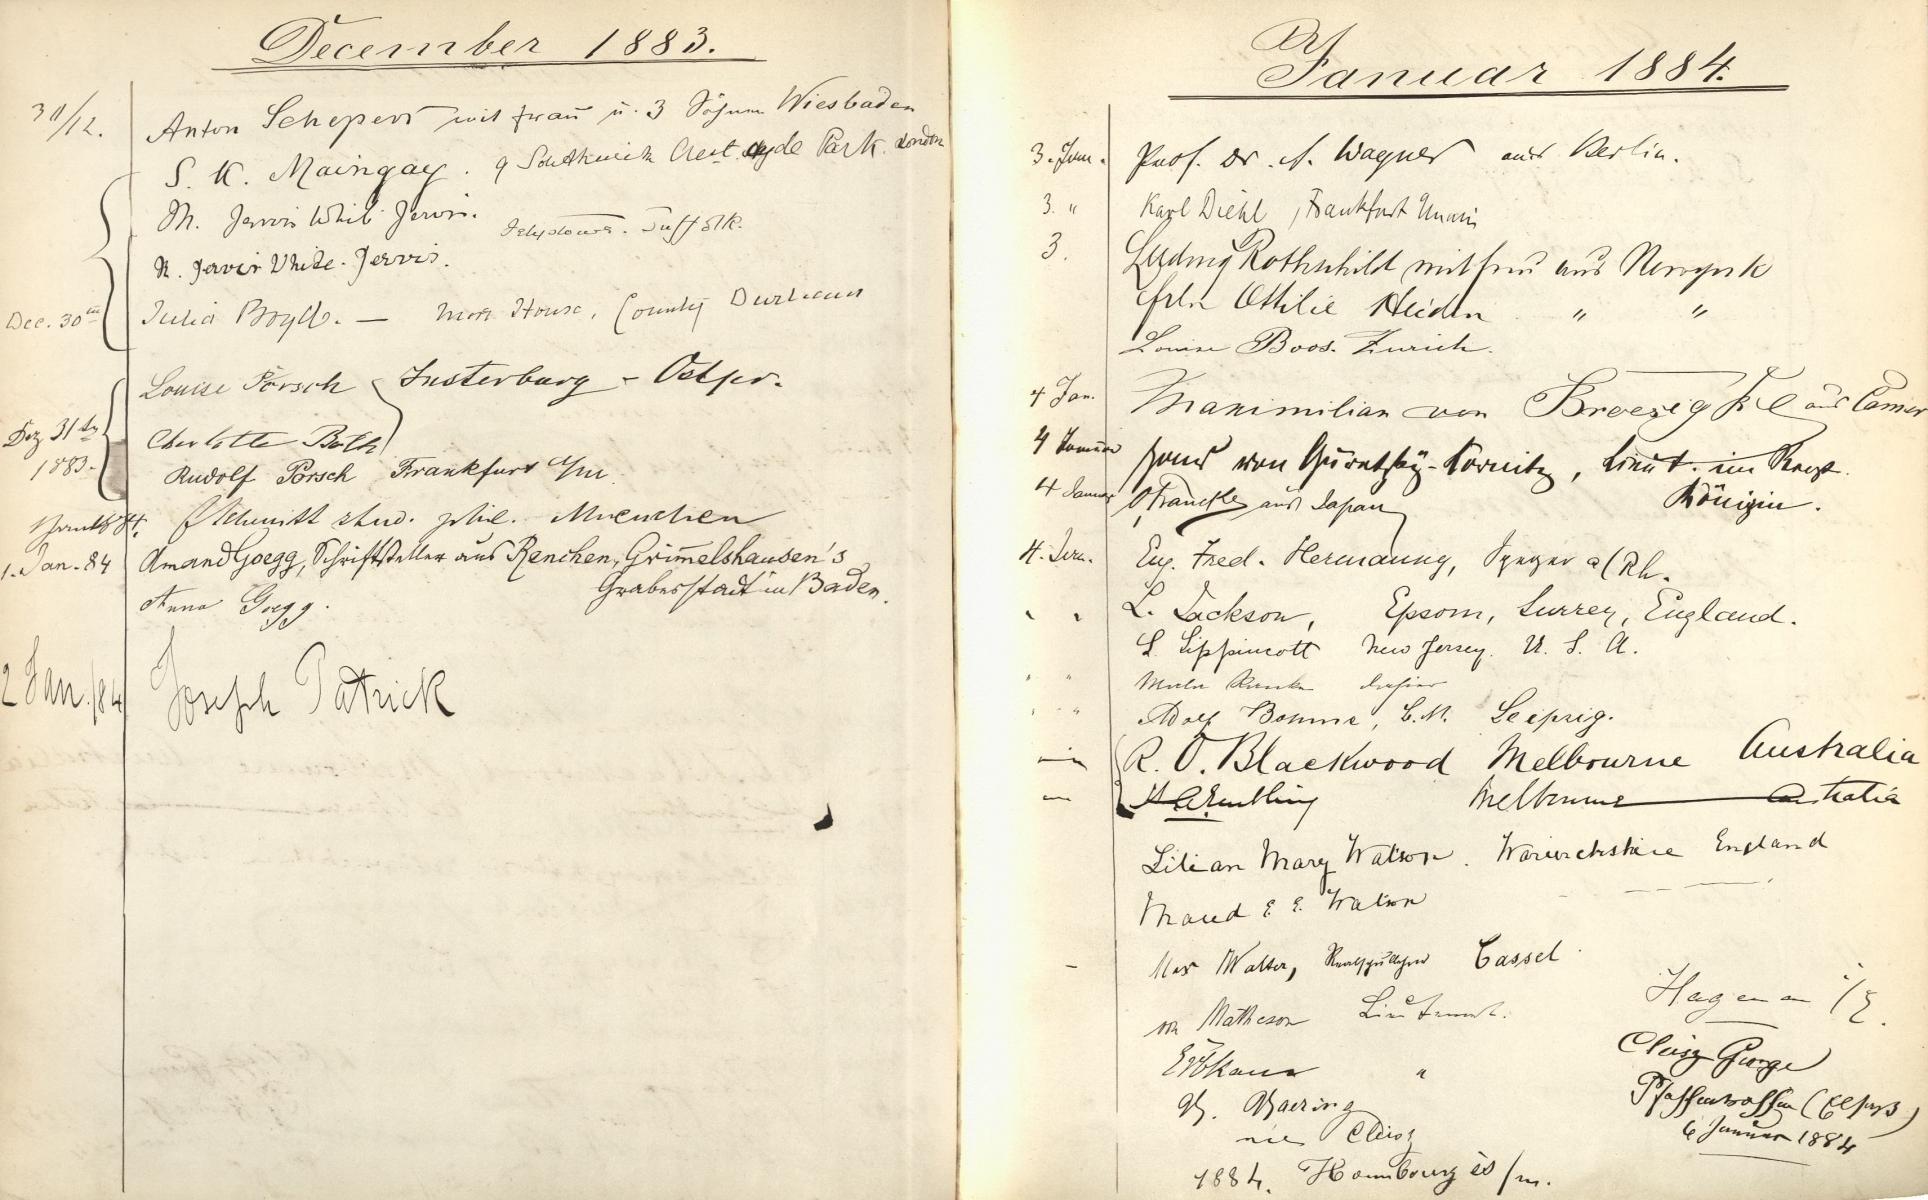 December 1883.
30/12. Anton Schepers mit Frau u. 3 Söhnen Wiesbaden
S. K. Maingay. 9 Southwick Crest. Hyde Park. London
M. Jervis White Jervis. Felixstowe. Suffolk.
R. Jervis White-Jervis.
Dec. 30th Julia Boyd. — Moor House, County Durham
Louise Porsch Insterburg - Ostpr.
Dez 31ten Charlotte Both
1883. Rudolf Porsch Frankfurt a/m.
Schmitt stud. phil. Muenchen
1. Jan. 84 Amand Goegg, Schriftsteller aus Renchen, Grimmelshausen's
Grabesstadt in Baden.
Anna Goegg.
2 Jan. /84 Joseph Patrick
Januar 1884.
3. Jan. Prof. Dr. A. Wagner aus Berlin.
3. " Karl Diehl, Frankfurt Main
3. Ludwig Rothschild mit Frau aus Newyork
Frln Ottilie Heiden " "
Louise Boos. Zurich.
4 Jan. Maximilian von Broesigke aus
4 Januar von Guretzky-Cornitz, Lieut. im Regt.
Königin.
4 Januar O Francke aus Japan
4. Jan. Eug. Fred. Hermanny, Speyer a/Rh.
" " L. Jackson, Epsom, Surrey, England.
S. Lippincott New Jersey. U. S. A.
" "
" " Adolf Bohme, C.M. Leipzig.
R. O. Blackwood Melbourne Australia
Embling Melbourne Australia
Lilian Mary Watson. Warwickshire England
Maud E. E. Watson
Max Walter, Cassel
Matheson Lieutenant.
"
Hagenau i/E.
G. Gaering
Cleiss
1884. Hombourg es /m.
Cleiss George
Pfaffenhoffen (Elsass)
6 Januar 1884